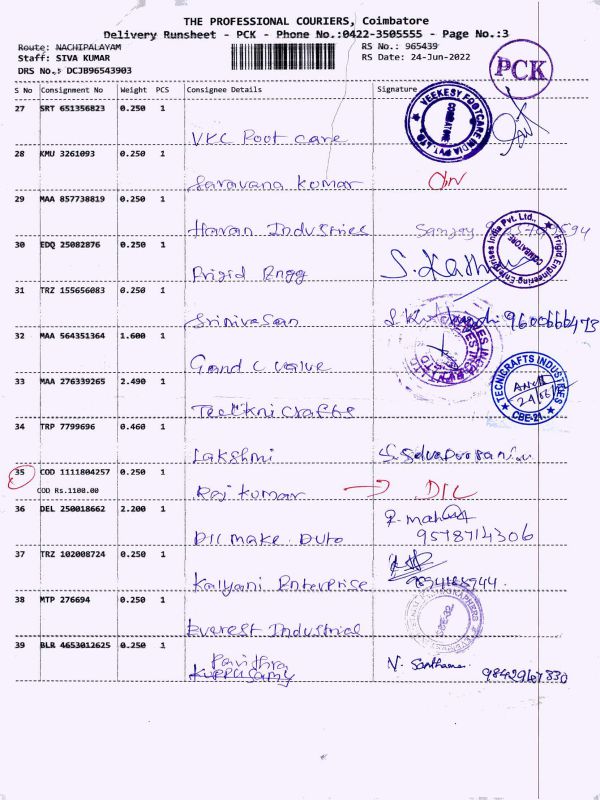 THE PROFESSIONAL COURIERS, Coimbatore
Delivery Runsheet - PCK - Phone No.:0422-3505555 - Page No.:3
Route: NACHIPALAYAM
RS No.: 965439
Staff: SIVA KUMAR
RS Date: 24-Jun-2022
DRS No.: DCJB96543903
PCK
S No Consignment No Weight PCS Consignee Details Signature
27 SRT 651356823 0.250 1
VKC Foot care
VEEKESY FOOTCARE INDIA PVT. LTD. COIMBATORE
28 KMU 3261093 0.250 1
Saravana kumar
29 MAA 857738819 0.250 1
Haran Industries Sanjay
30 EDQ 25082876 0.250 1
Frigid Engg
Frigid Engineering Enterprises India Pvt. Ltd., COIMBATORE
31 TRZ 155656083 0.250 1
Srinivasan 9600666473
32 MAA 564351364 1.600 1
Gand C value
33 MAA 276339265 2.490 1
Techni crafts
TECNICRAFTS INDUSTRIES CBE-21.
34 TRP 7799696 0.460 1
Lakshmi
35 COD 1111804257 0.250 1
COD Rs.1100.00
Raj kumar → D/L
36 DEL 250018662 2.200 1
DLL make Auto
9578714306
37 TRZ 102008724 0.250 1
Kalyani Enterprise
38 MTP 276694 0.250 1
Everest Industrial
39 BLR 4653012625 0.250 1
Pavithra
Kuppusamy
N. Santhana